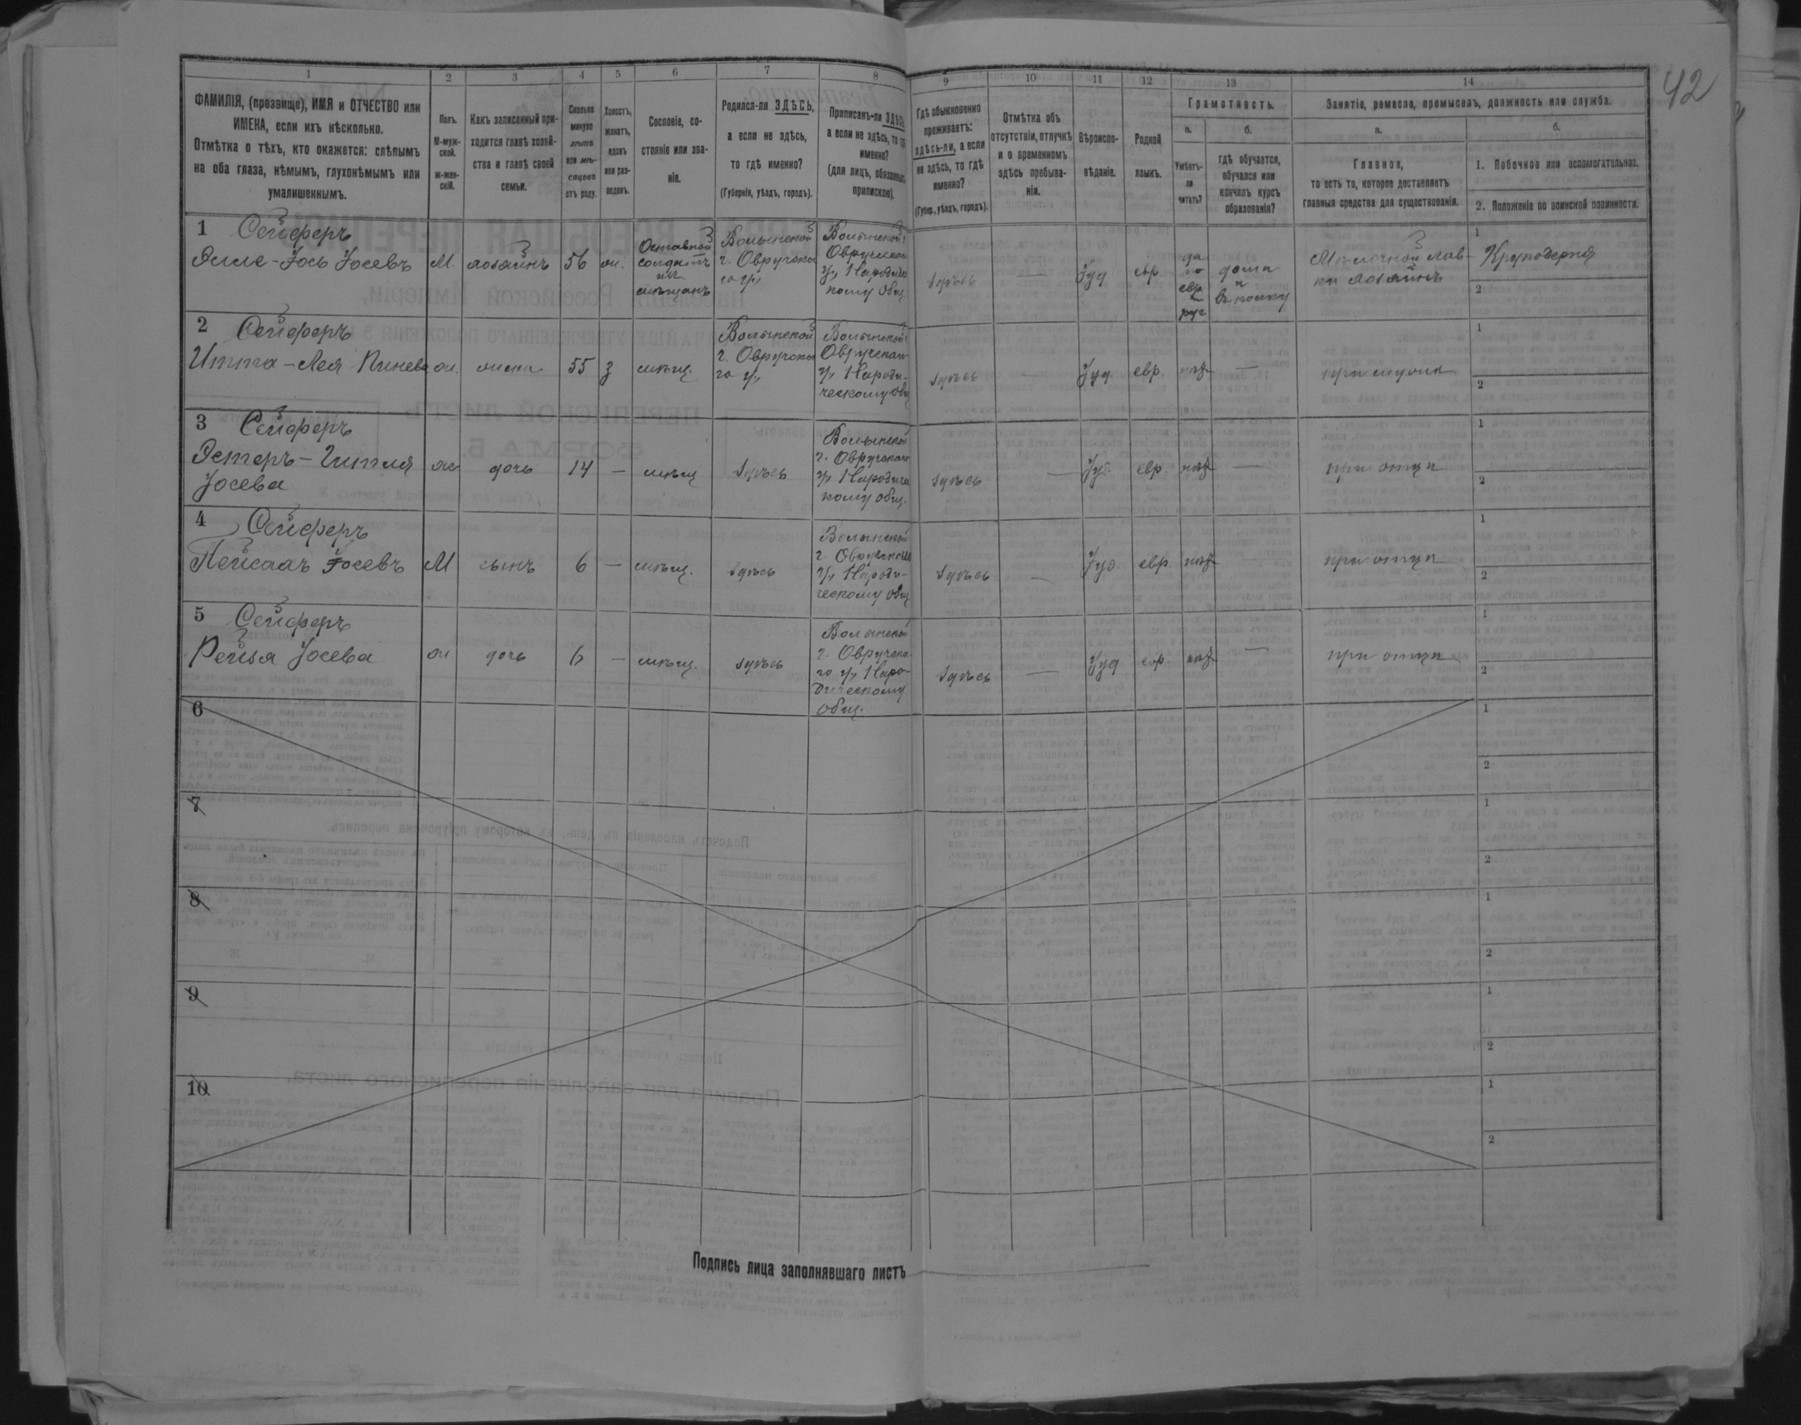 42
1 2 3 4 5 6 7 8 9 10 11 12 13 14
ФАМИЛІЯ, (прозвище), ИМЯ и ОТЧЕСТВО или
ИМЕНА, если ихъ нѣсколько.
Отмѣтка о тѣхъ, кто окажется: слѣпымъ
на оба глаза, нѣмымъ, глухонѣмымъ или
умалишеннымъ.
Полъ.
М-муж-
ской.
ж-жен-
скій.
Какъ записанный при-
ходится главѣ хозяй-
ства и главѣ своей
семьи.
Сколько
минуло
лѣтъ
или мѣ-
сяцевъ
отъ роду.
Холостъ,
женатъ,
вдовъ
или раз-
веденъ.
Сословіе, со-
стояніе или зва-
ніе.
Родился-ли ЗДѢСЬ,
а если не здѣсь,
то гдѣ именно?
(Губернія, уѣздъ, городъ).
Приписанъ-ли ЗДѢСЬ,
а если не здѣсь, то гдѣ
именно?
(для лицъ, обязанныхъ
припискою).
Гдѣ обыкновенно
проживаетъ:
здѣсь-ли, а если
не здѣсь, то гдѣ
именно?
(Губер., уѣздъ, городъ).
Отмѣтка объ
отсутствіи, отлучкѣ
и о временномъ
здѣсь пребыва-
ніи.
Вѣроиспо-
вѣданіе.
Родной
языкъ.
Грамотность.
а.
Умѣетъ-
ли
читать?
б.
гдѣ обучается,
обучался или
кончилъ курсъ
образованія?
Занятіе, ремесло, промыселъ, должность или служба.
а.
Главное,
то есть то, которое доставляетъ
главныя средства для существованія.
б.
1. Побочное или вспомогательное.
2. Положеніе по воинской повинности.
1 Сейферъ
Іось Іосевъ М. хозяинъ 56 ж.
Отставной
солдатъ
мѣщанъ
Волынской
г. Овручска
го у,
Волынской
Овручскаго
у, Народич
кому Общ
здѣсь — Іуд евр
да
по
евр
и
рус
дома
и
въ полку
Мѣлочной лав
ки хозяинъ
1 Круподерня
2
2 Сейферъ
Итта-Лея Пинева ж. жена 55 з мѣщ.
Волынской
г. Овручска
го у,
Волынской
Овручскаго
у, Народи-
ческому Общ
здѣсь — Іуд евр. нѣт — при мужѣ
1
2
3 Сейферъ
Эстеръ-Гитля
Іосева
ж дочь 14 — мѣщ здѣсь
Волынской
г. Овручскаго
у, Народич
кому общ.
здѣсь — Іуд. евр. нѣт — при отцѣ
1
2
4 Сейферъ
Пейсахъ Іосевъ М сынъ 6 — мѣщ. здѣсь
Волынской
г. Овручскаго
у, Народи-
ческому Общ
здѣсь — Іуд евр нѣт — при отцѣ
1
2
5 Сейферъ
Рейзя Іосева ж дочь 6 — мѣщ. здѣсь
Волынской
г. Овручска
го у, Наро-
дическому
общ.
здѣсь — Іуд евр нѣт — при отцѣ
1
2
6
1
2
7
1
2
8
1
2
9
1
2
10
1
2
Подпись лица заполнявшаго листъ